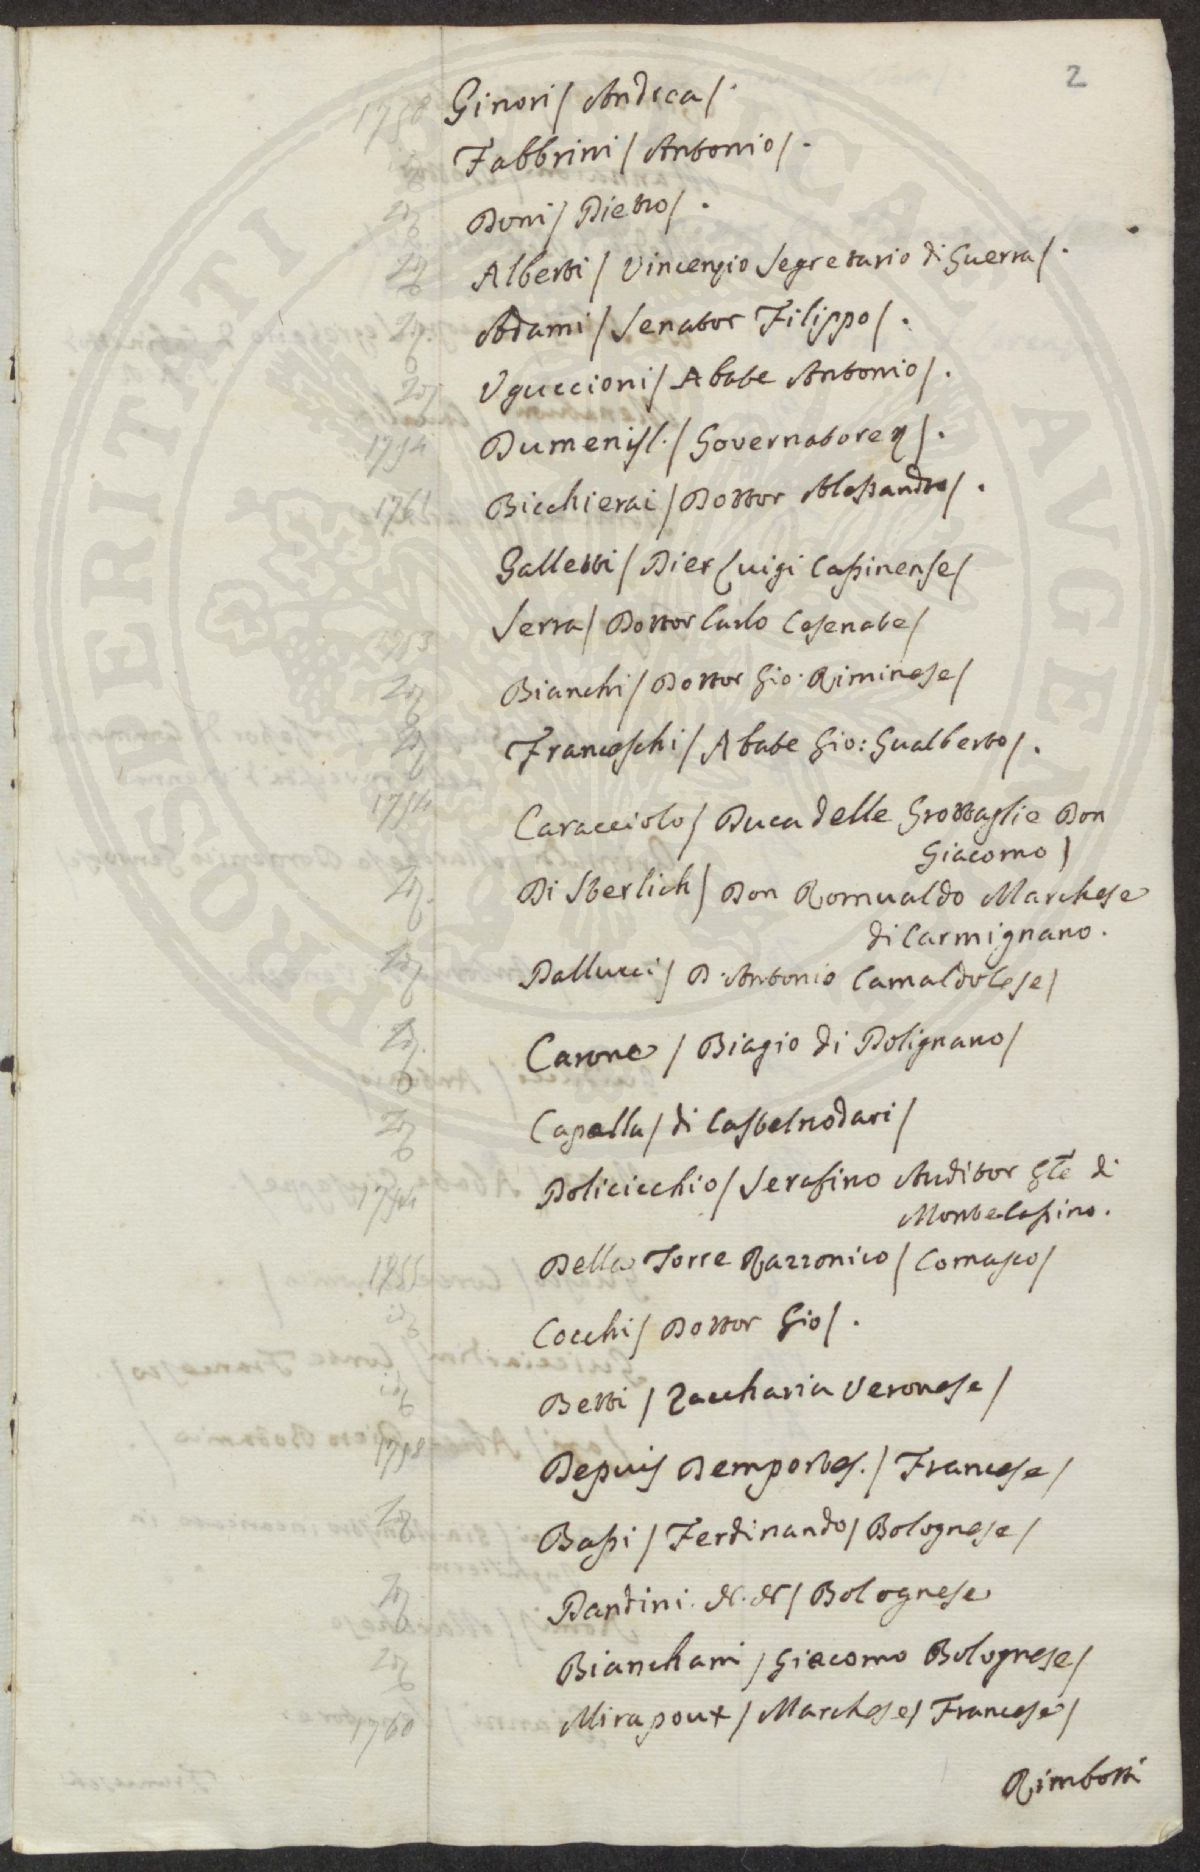 2
1738 Ginori / Andrea / .
id. Fabbrini / Antonio / .
id. Doni / Pietro / .
id. Alberti / Vincenzio Segretario di Guerra / .
id. Adami / Senator Filippo / .
id. Uguccioni / Abate Antonio / .
1754 Dumenisl. / Governatore / .
1761 Bicchierai / Dottor Alessandro / .
Galletti / Pier Luigi Cassinense /
1753 Serra / Dottor Carlo Cesenate /
id. Bianchi / Dottor Gio: Riminese /
id. Franceschi / Abate Gio: Gualberto / .
1754 Caracciolo / Duca delle Grottaglie Don
Giacomo /
id. Di Sterlich / Don Romualdo Marchese
di Carmignano .
id. Pallucci / D. Antonio Camaldolese /
id. Carone / Biagio di Polignano /
id. Capella / di Castelnodari /
1754 Policicchio / Serafino Auditor Gle di
Montecassino .
1755 Della Torre Razzonico / Comasco /
id. Cocchi / Dottor Gio / .
id. Betti / Zaccharia Veronese /
1758 Depuis Demportes . / Francese /
id. Bassi / Ferdinando / Bolognese /
id. Pandini . N. N / Bolognese
id. Bianchani / Giacomo Bolognese /
1760 Mirapoux / Marchese / Francese /
Rimbotti
PROSPERITATI PUBLICAE AUGENDAE